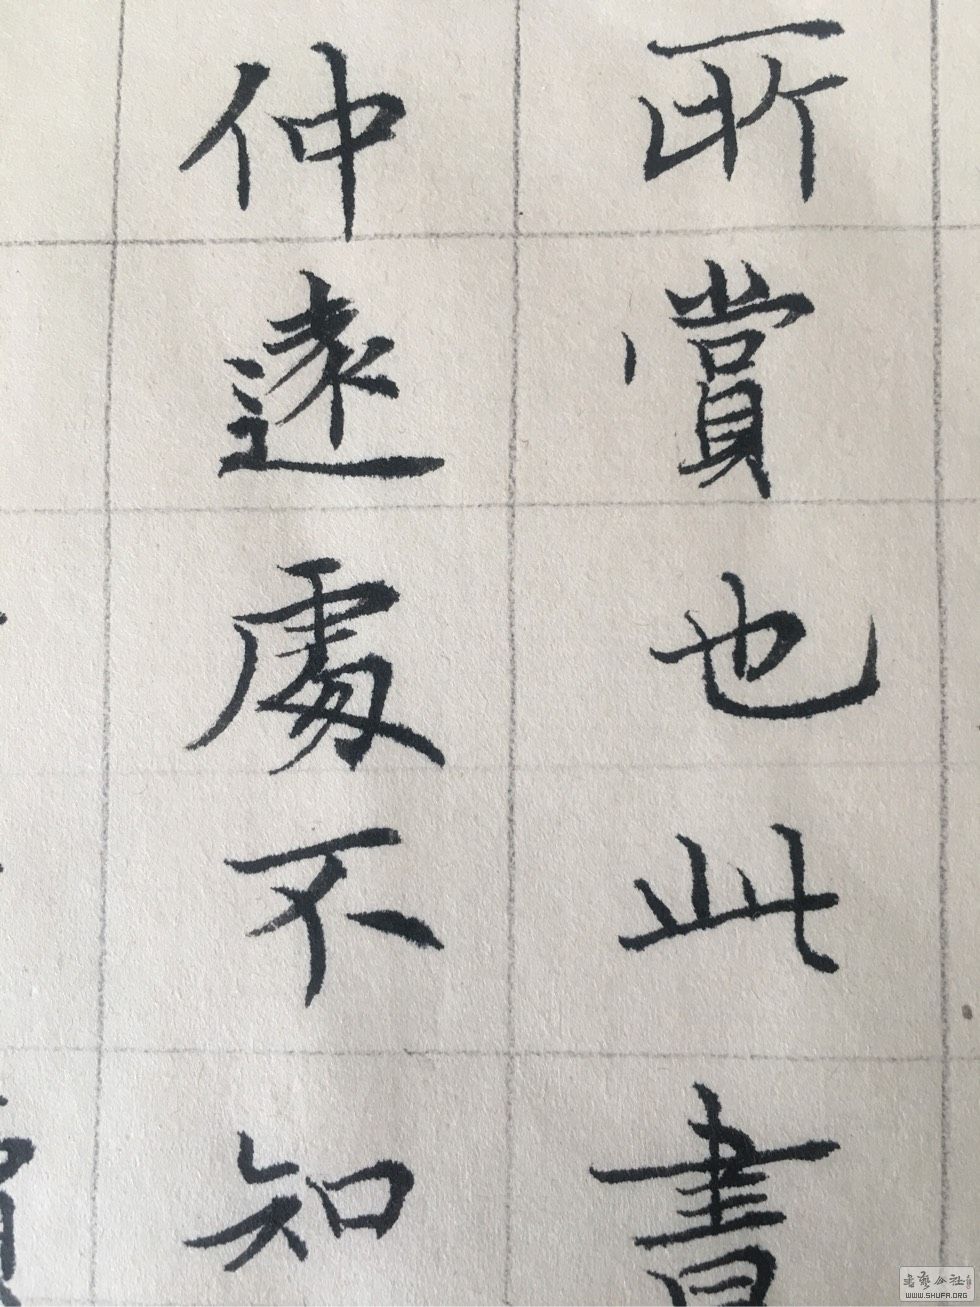 所賞也此書
仲遠處不知
書藝公社
WWW.SHUFA.ORG